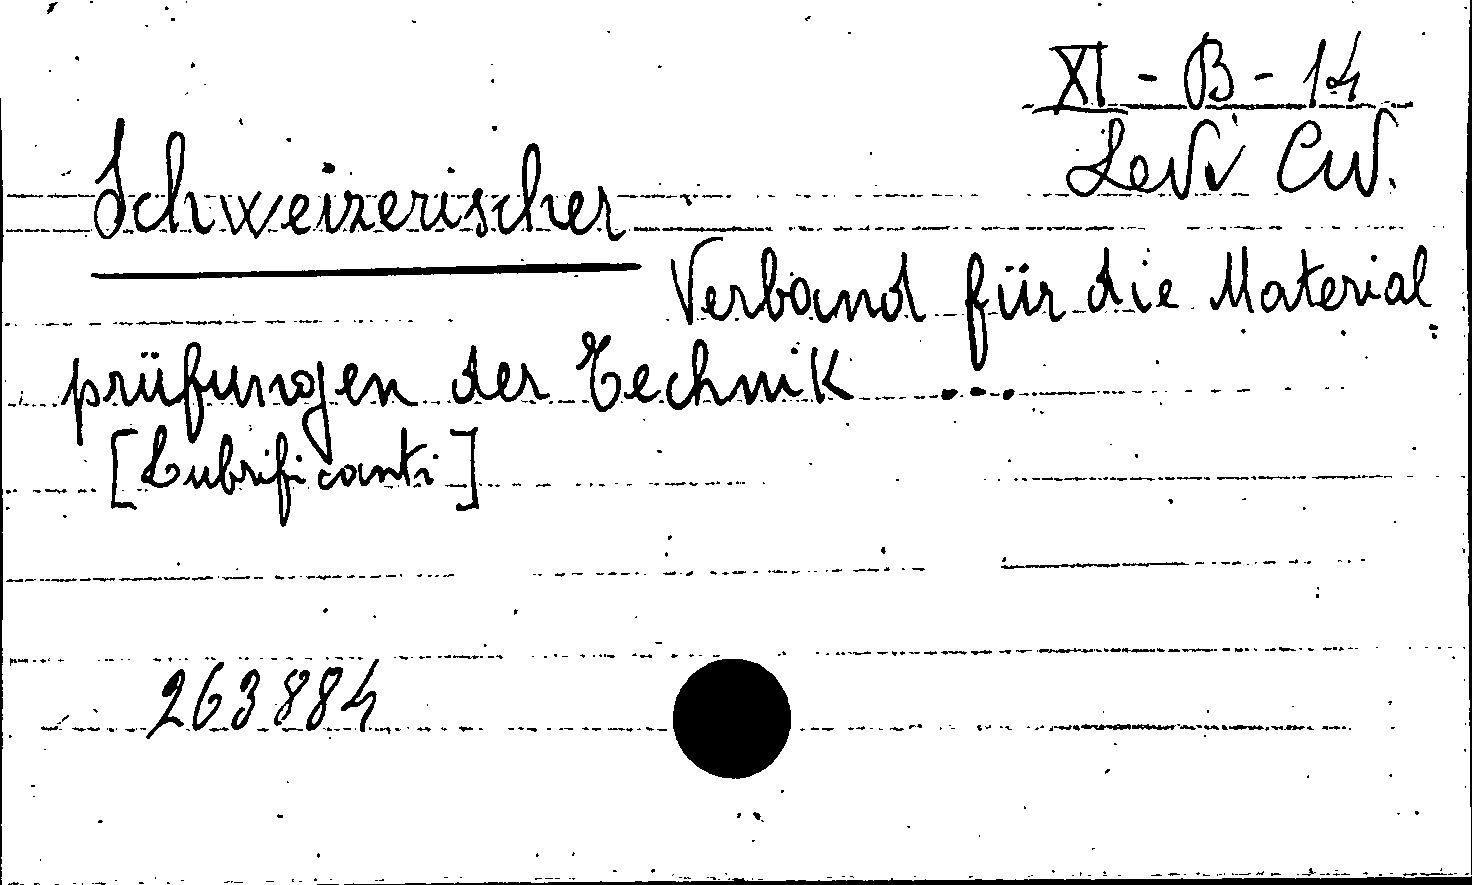 XI - B - 14
Levi CW.
Schweizerischer
Verband für die Material
prüfungen der Technik ...
[Lubrificanti]
263884